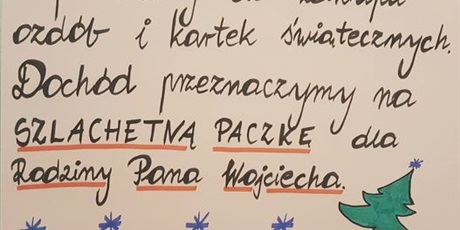 ozdób i kartek świątecznych.
Dochód przeznaczymy na
SZLACHETNĄ PACZKĘ dla
Rodziny Pana Wojciecha.